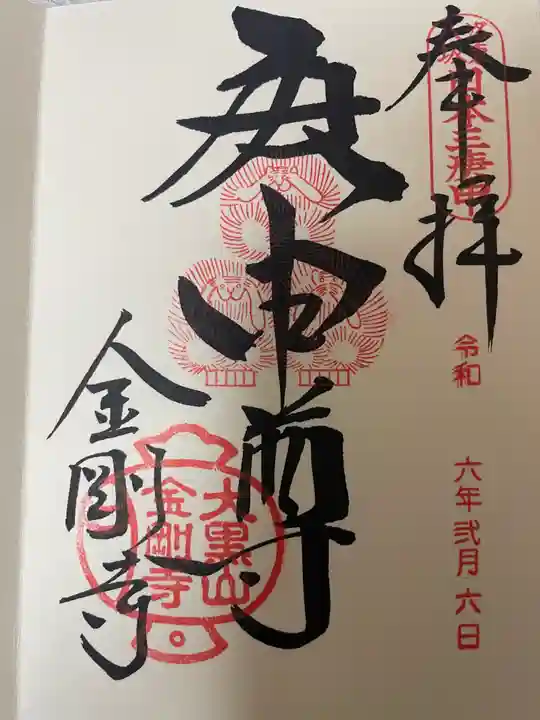 奉拝
日本三庚申
令和 六年弐月六日
庚申尊
金剛寺
大黒山
金剛寺